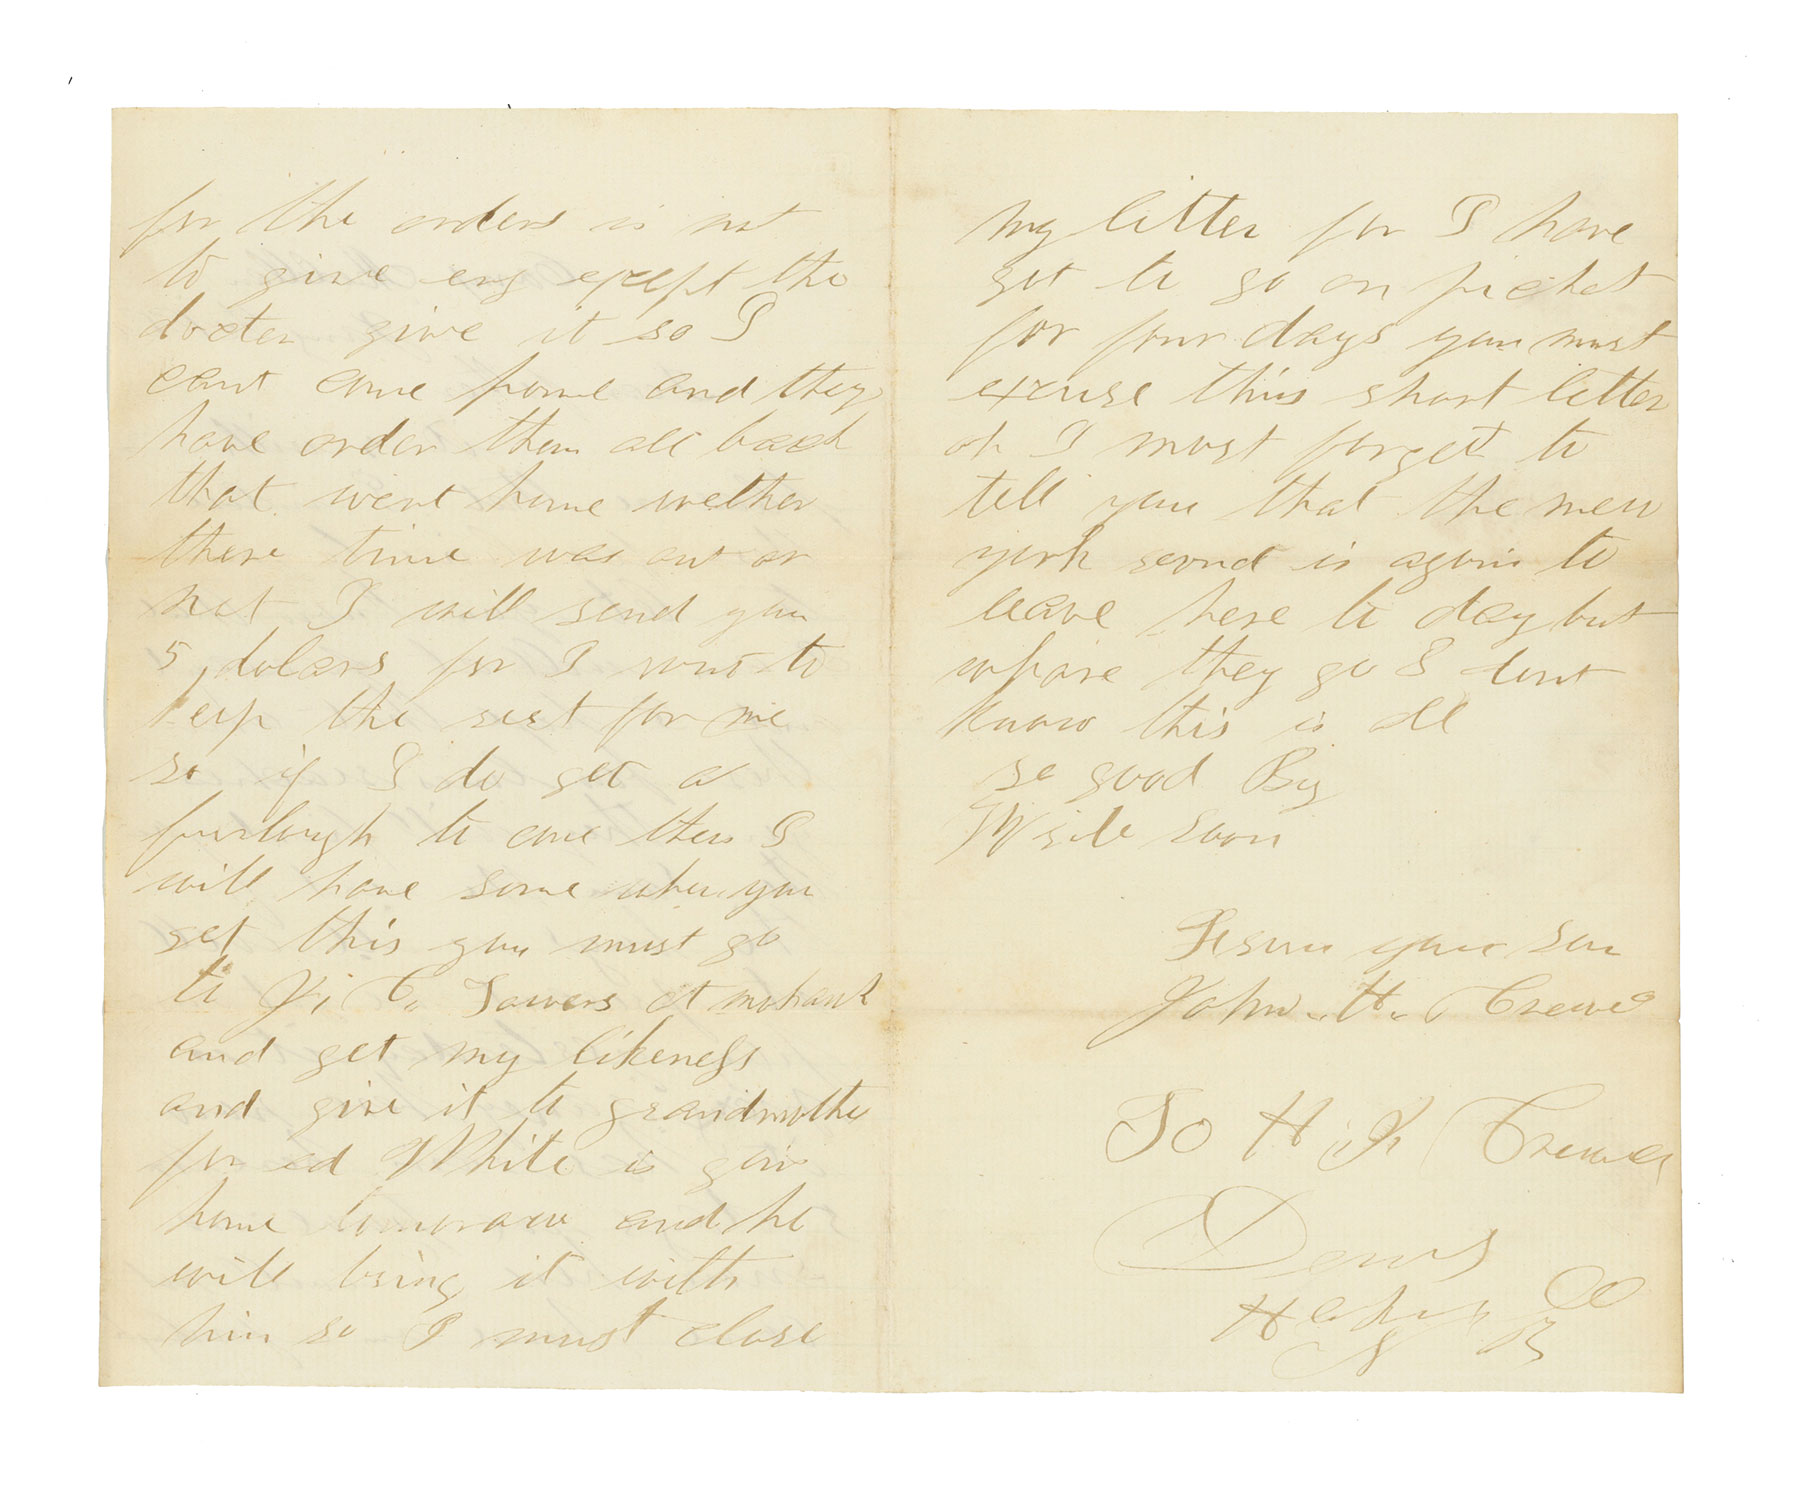 for the orders is not
to give eny except the
docter give it so I
cant come home and they
have order them all back
that went home wether
there time was out or
not I will send you
5 dolars for I want to
keep the rest for me
so if I do get a
furlough to come then I
will have some when you
get this you must go
to Towers at mohawk
and get my likeness
and give it to grandmother
for ed White is goin
home tomoraw and he
will bring it with
him so I must close
my letter for I have
got to go on picket
for four days you must
excuse this short letter
oh I most forget to
tell you that the new
york second is agoin to
leave here to day but
whare they go I dont
know this is all
so good By
Write soon
From your son
John H. Crewe
To H Crewe